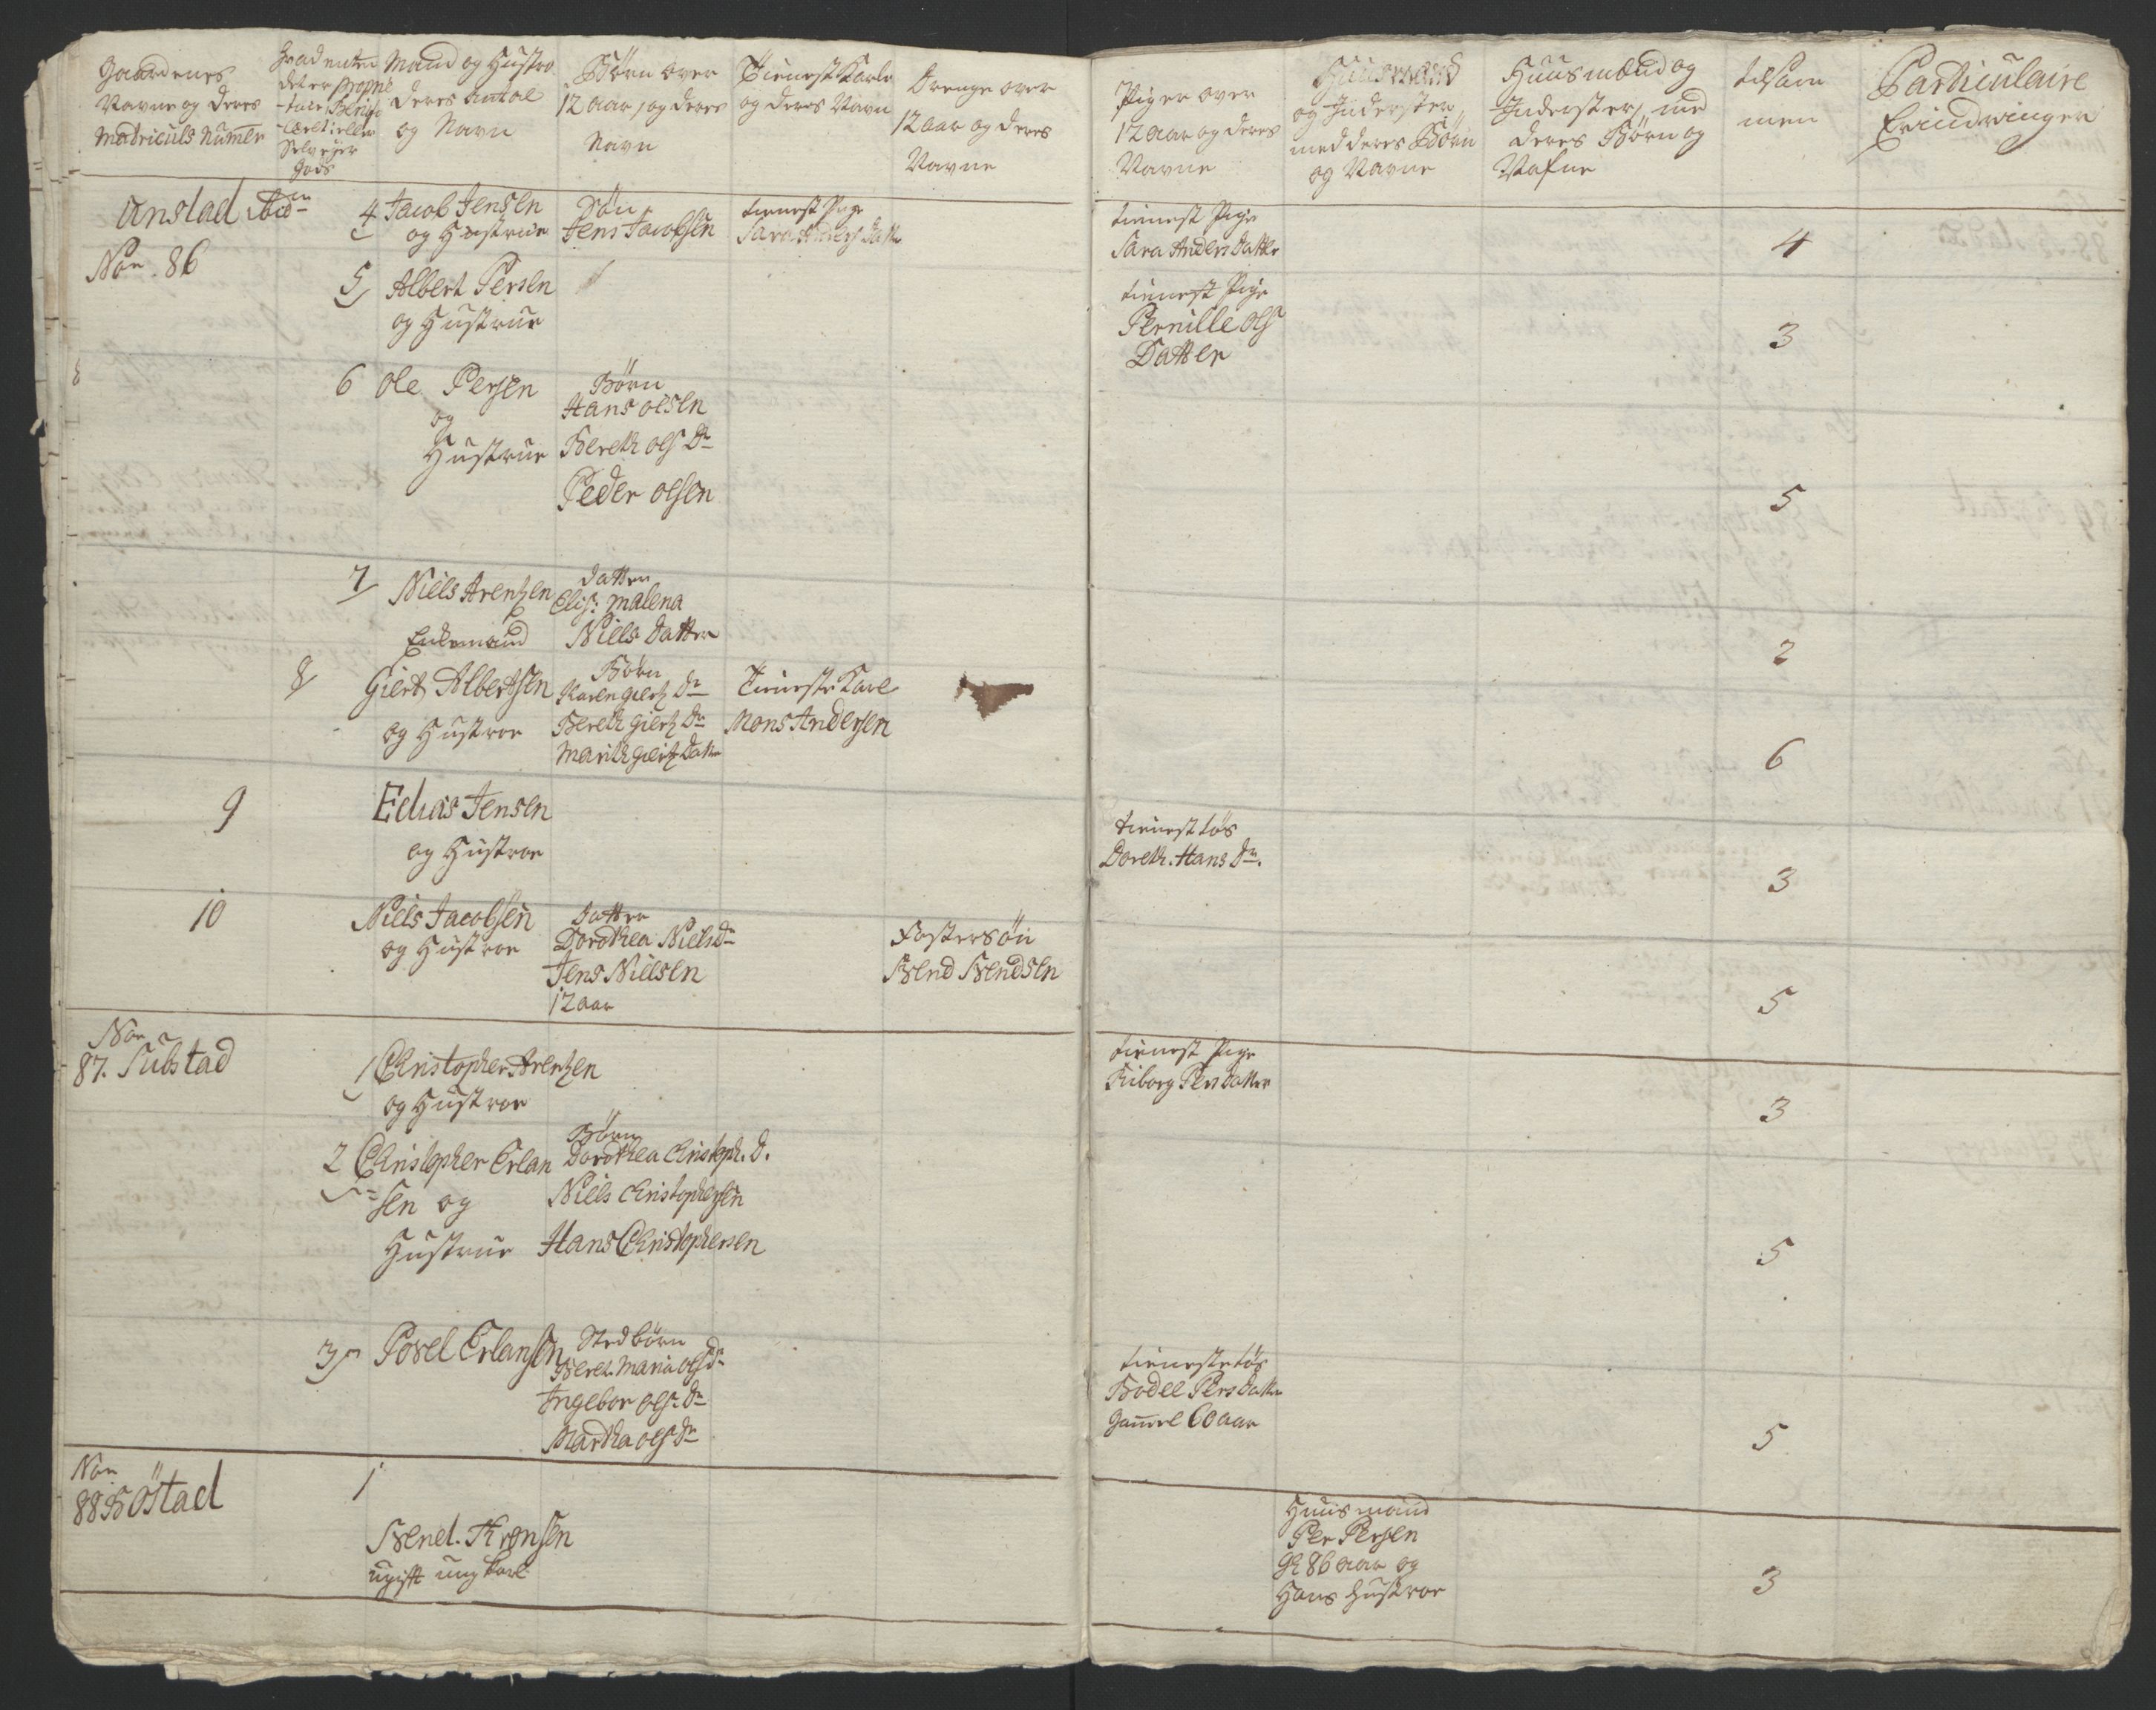 Gaardenes
Navne og deres
Matriculs Numer
Hvad enten
det er Propri
-taire Benifi
-ceret eller
Selvejer
Gods
Mand og Hustro
deres antal
og Navn
Börn over
12 aar, og deres
Navn
Tienest Karle
og deres Navn
Drenge over
12 aar og deres
Navne
Piger over
12 aar og deres
Navne
Huusmænd
og Inderster
med deres Börn
og Navne
Huusmænd og
Inderster, med
deres Börn og
Nafne
tilsam
men
Particulaire
Erindringer
Unstad
Non 86
4 Jacob Jensen
og Hustrue
Sön
Jens Jacobsen
tienest Pige
Sara Anders Datter
tienest Pige
Sara Anders Datter
4
5 Albert Persen
og Hustrue
tienest Pige
Pernille Ols
Datter
3
6 Ole Persen
og
Hustrue
Börn
Hans Olsen
Bereth Ols Dr
Peder Olsen
5
7 Niels Arentzen
Enkemand
Datter
Elis: Malena
Niels Datter
2
8 Giert Albertsen
og Hustroe
Börn
Karen Giertz Dr
Bereth Giertz Dr
Marith Giertz Datter
Tieneste Karl
Mons Andersen
6
9 Elias Jensen
og Hustroe
tienest tös
Doreth. Hans Dr.
3
10 Niels Jacobsen
og Hustroe
Datter
Dorothea Niels Dr
Jens Nielsen
12 aar
Fostersön
Svend Svendsen
5
Non
87. Substad
1 Christopher Arentzen
og Hustroe
tienest Pige
Kiborg Pers Datter
3
2 Christopher Erlan
sen og
Hustrue
Börn
Dorothea Christoph. D.
Niels Christophersen
Hans Christophersen
5
3 Povel Erlansen
Stedbörn
Bereth Maria Ols Dr
Ingebor Ols: Dr
Martha Ols Dr
tieneste tös
Bodel Pers Datter
Gammel 60 aar
5
Non
88 Böstad
1
Svend Thronsen
ugift ung karl
Huusmand
Per Persen
Gl 86 aar og
Hans Hustroe
3